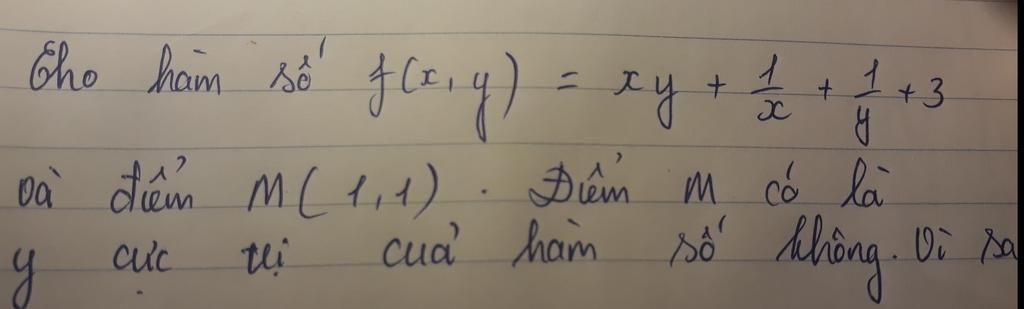 Cho hàm số f(x, y) = xy + 1/x + 1/y + 3
và điểm M(1,1). Điểm M có là
y cực trị của hàm số không. Vì sa